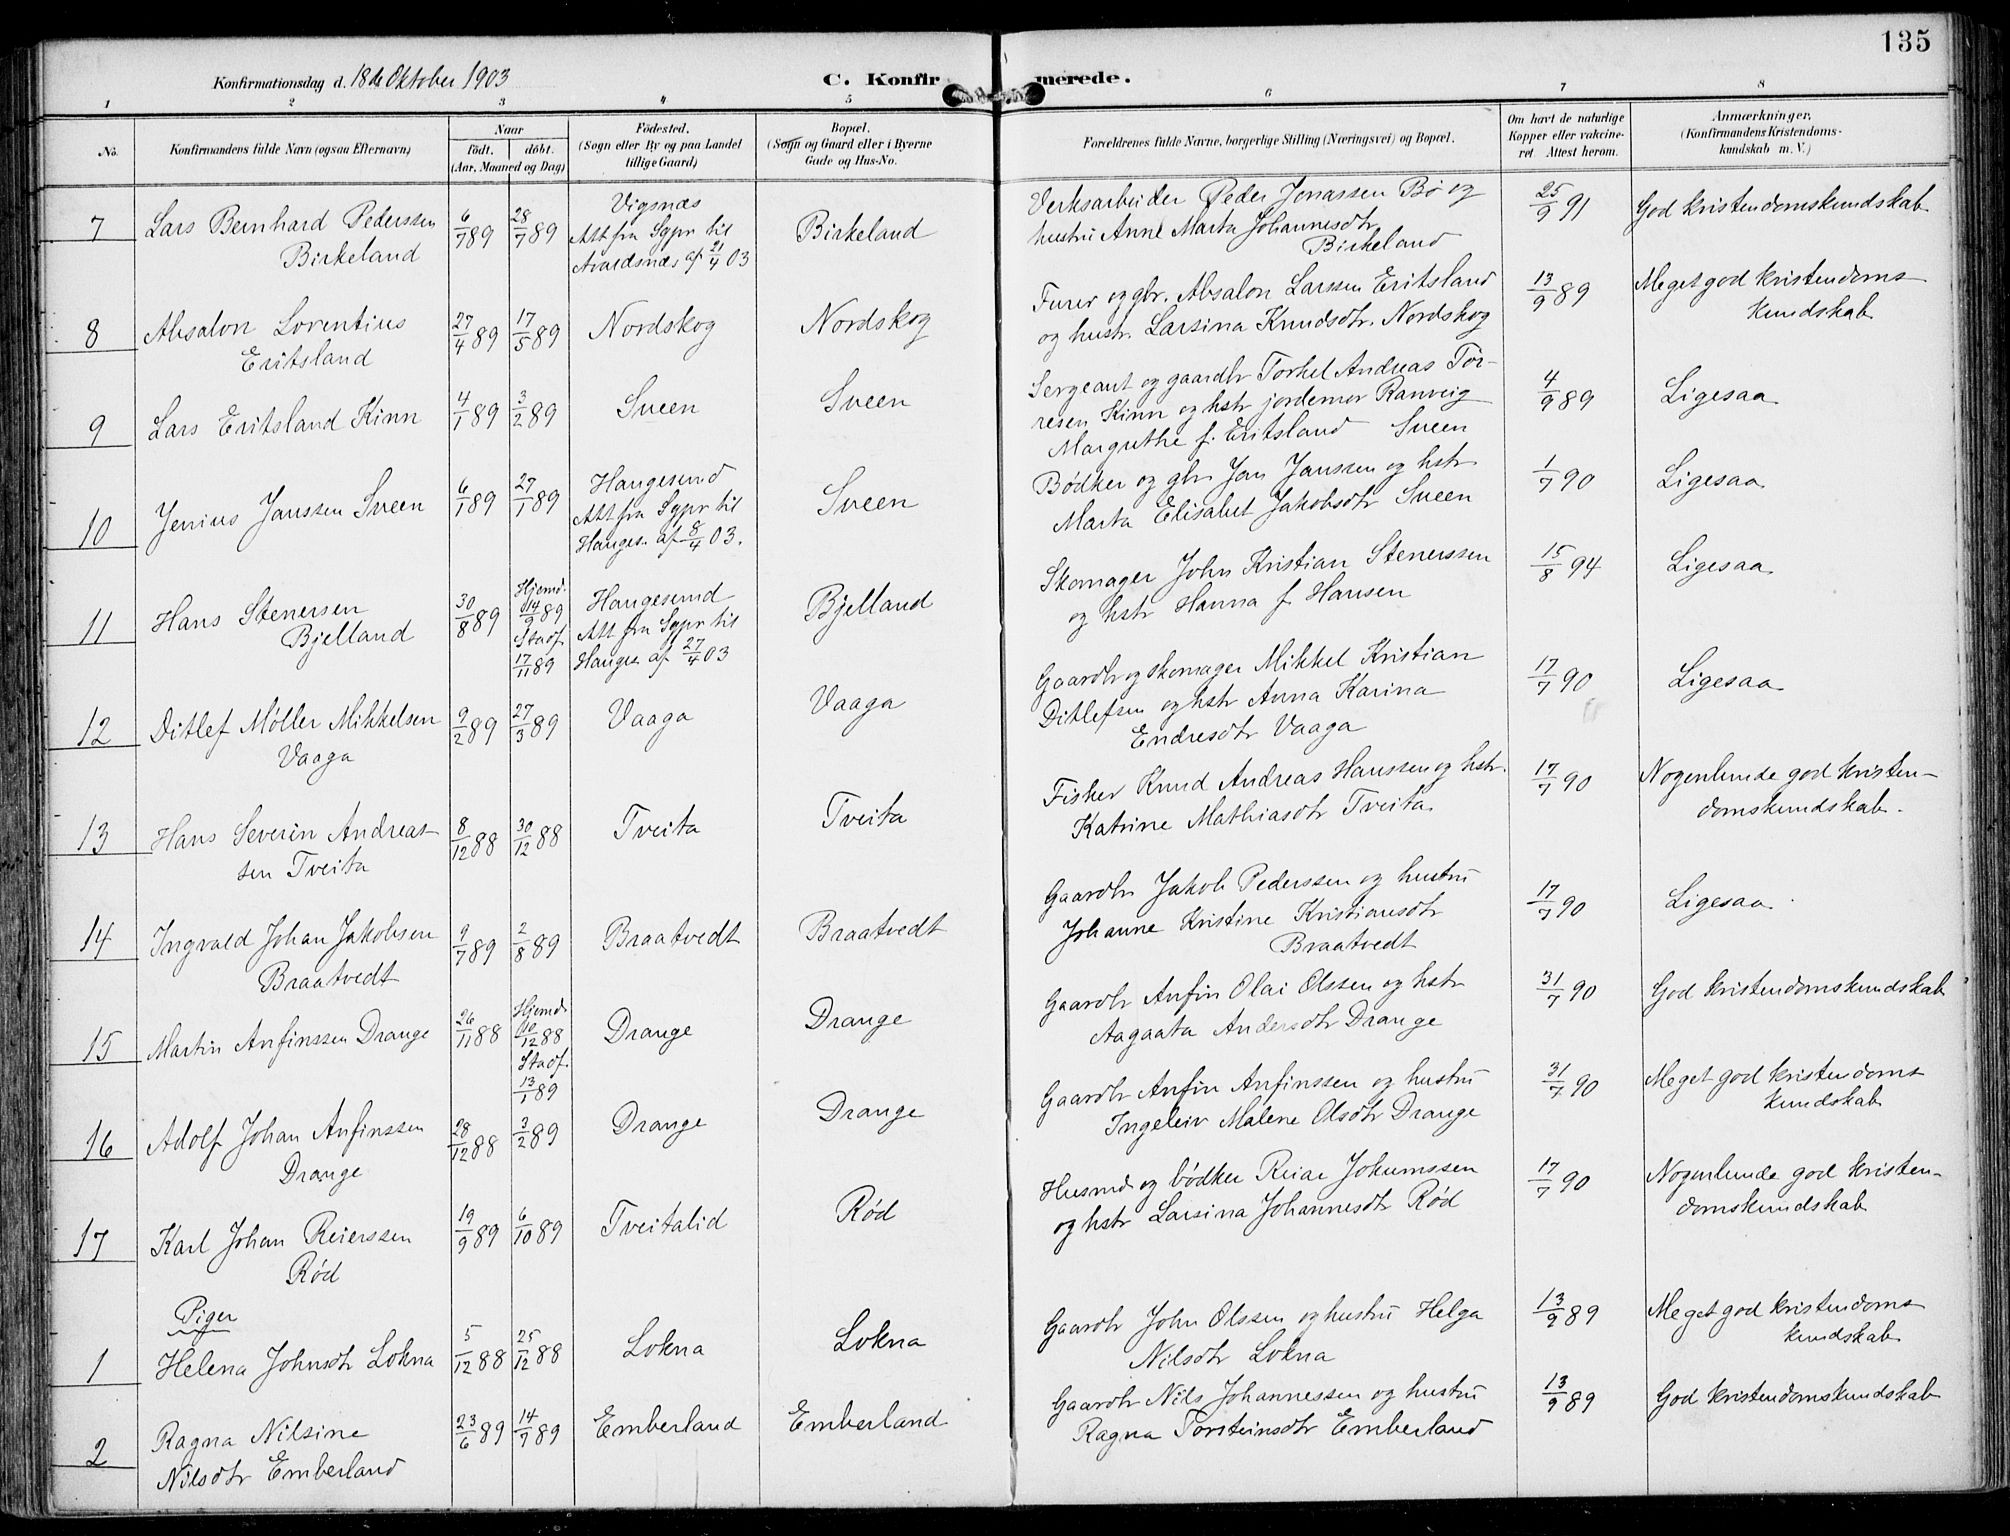 135
Konfirmationsdag d. 18de Oktober 1903
C. Konfirmerede.
1 2 3 4 5 6 7 8
No.
Konfirmandens fulde Navn (ogsaa Efternavn)
Naar
Födt. döbt.
(Aar, Maaned og Dag)
Födested.
(Sogn eller By og paa Landet
tillige Gaard)
Bopæl.
(Sogn og Gaard eller i Byerne
Gade og Hus-No.
Forældrenes fulde Navne, borgerlige Stilling (Næringsvei) og Bopæl.
Om havt de naturlige
Kopper eller vakcine-
ret. Attest herom.
Anmærkninger,
(Konfirmandens Kristendoms-
kundskab m. V.)
7 Lars Bernhard Pederssen
Birkeland
6/7 89 28/7 89
Vigsnæs
Att fra Sgpr til
Avaldsnæs af 21/4 03
Birkeland
Verksarbeider Peder Jonassen Bø og
hustru Anne Marta Johannesdtr
Birkeland
25/9 91
God kristendomskundskab
8 Absalon Lorentius
Eritsland
27/4 89 17/5 89
Nordskog
Nordskog
Furer og gbr. Absalon Larssen Eritsland
og hustr. Larsina Knudsdtr. Nordskog
13/9 89
Meget god kristendoms
kundskab
9 Lars Eritsland Kinn
4/1 89 3/2 89
Sveen
Sveen
Sergeant og gaardbr Torkel Andreas Tor-
resen Kinn og hstr jordemor Ranveig
Margrethe f. Eritsland Sveen
4/9 89
Ligesaa
10 Jenius Janssen Sveen
6/1 89 27/1 89
Haugesund
Att fra Sgpr til
Hauges. af 8/4 03.
Sveen
Bødker og gbr Jan Janssen og hstr
Marta Elisabet Jakobsdtr Sveen
1/7 90
Ligesaa
11 Hans Stenersen
Bjelland
30/8 89
Hjemd.
14/9 89
Stadf.
17/11 89
Haugesund
Att fra Sgpr til
Hauges. af 27/4 03
Bjelland
Skomager John Kristian Stenerssen
og hstr Hanna f. Hansen
15/8 94
Ligesaa
12 Ditlef Møller Mikkelsen
Vaaga
9/2 89 27/3 89
Vaaga
Vaaga
Gaardbr og skomager Mikkel Kristian
Ditlefsen og hstr Anna Karina
Endresdtr Vaaga
17/7 90
Ligesaa
13 Hans Severin Andreas-
sen Tveita
8/12 88 30/12 88
Tveita
Tveita
Fisker Knud Andreas Hanssen og hstr.
Katrine Mathiasdtr Tveita
17/7 90
Nogenlunde god kristen-
domskundskab.
14 Ingvald Johan Jakobsen
Braatvedt
9/7 89 2/8 89
Braatvedt
Braatvedt
Gaardbr Jakob Pederssen og hustru
Johanne Kristine Kristiansdtr
Braatvedt
17/7 90
Ligesaa
15 Martin Anfinssen Drange
26/11 88
Hjemd.
10/12 88
Stadf.
13/1 89
Drange
Drange
Gaardbr Anfin Olai Olssen og hstr
Aagaata Andersdtr Drange
31/7 90
God kristendomskundskab
16 Adolf Johan Anfinssen
Drange
28/12 88 3/2 89
Drange
Drange
Gaardbr Anfin Anfinssen og hustru
Ingeleiv Malene Olsdtr Drange
31/7 90
Meget god kristendoms
kundskab
17 Karl Johan Reierssen
Rød
19/9 89 6/10 89
Tveitalid
Rød
Husmd og bødker Reiar Jokumssen
og hstr Larsina Johannesdtr Rød
17/7 90
Nogenlunde god kristen-
domskundskab
Piger
1 Helena Johnsdtr Lokna
5/12 88 25/12 88
Lokna
Lokna
Gaardbr John Olssen og hustru Helga
Nilsdtr Lokna
13/9 89
Meget god kristendoms
kundskab
2 Ragna Nilsine
Nilsdtr Emberland
23/6 89 14/7 89
Emberland
Emberland
Gaardbr Nils Johannessen og hustru
Ragna Torsteinsdtr Emberland
13/9 89
God kristendomskundskab